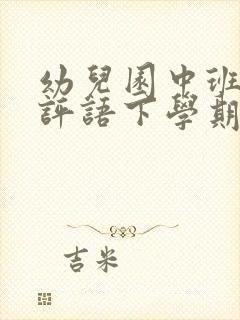 幼兒園中班
評語下學期
吉米